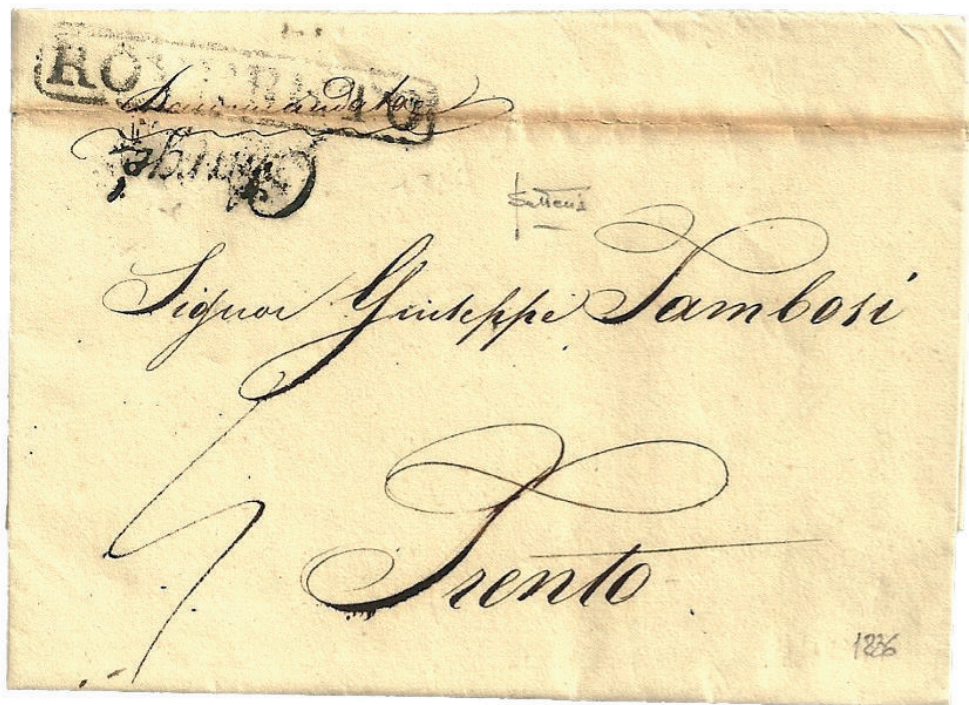 ROVEREDO
Raccomandata
Charge
Signor Giuseppe Tambosi
Trento
1836